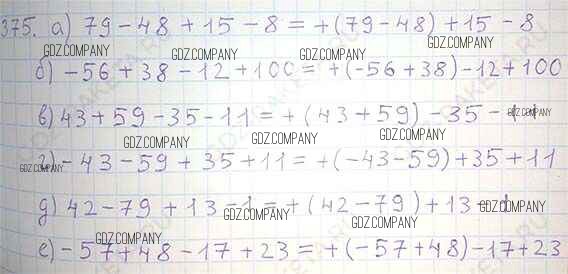 375. а) 79 - 48 + 15 - 8 = +(79 - 48) + 15 - 8
GDZ.COMPANY GDZ.COMPANY GDZ.COMPANY
б) -56 + 38 - 12 + 100 = +(-56 + 38) - 12 + 100
GDZ.COMPANY GDZ.COMPANY
в) 43 + 59 - 35 - 11 = +(43 + 59) - 35 - 11
GDZ.COMPANY GDZ.COMPANY GDZ.COMPANY
г) -43 - 59 + 35 + 11 = +(-43 - 59) + 35 + 11
GDZ.COMPANY
GDZ.COMPANY
д) 42 - 79 + 13 - 1 = +(42 - 79) + 13 - 1
GDZ.COMPANY GDZ.COMPANY
GDZ.COMPANY
е) -57 + 48 - 17 + 23 = +(-57 + 48) - 17 + 23